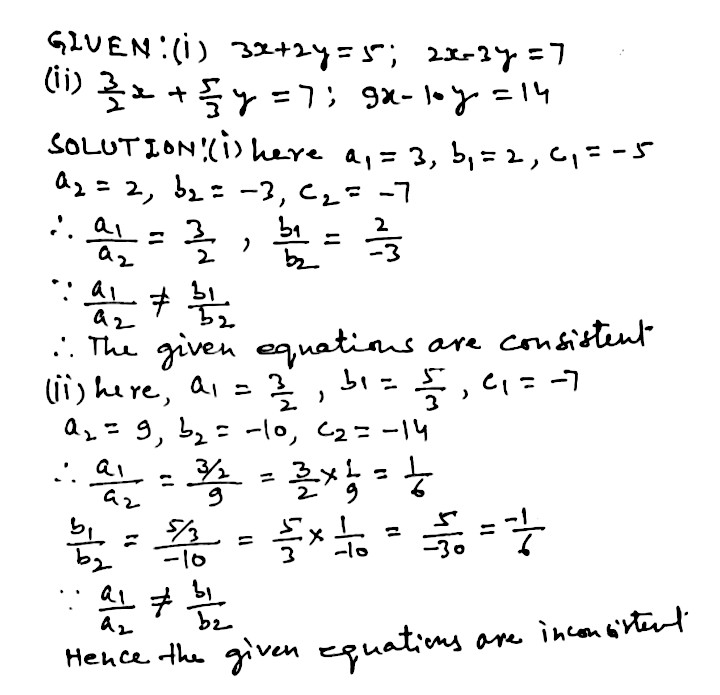 GIVEN:(i) 3x+2y=5; 2x-3y=7
(ii) 3/2 x + 5/3 y = 7; 9x-10y = 14
SOLUTION:(i) here a₁ = 3, b₁ = 2, c₁ = -5
a₂ = 2, b₂ = -3, c₂ = -7
∴ a₁/a₂ = 3/2 , b₁/b₂ = 2/-3
∵ a₁/a₂ ≠ b₁/b₂
∴ The given equations are consistent
(ii) here, a₁ = 3/2 , b₁ = 5/3 , c₁ = -7
a₂ = 9, b₂ = -10, c₂ = -14
∴ a₁/a₂ = 3/2/9 = 3/2 × 1/9 = 1/6
b₁/b₂ = 5/3/-10 = 5/3 × 1/-10 = 5/-30 = -1/6
∵ a₁/a₂ ≠ b₁/b₂
Hence the given equations are inconsistent